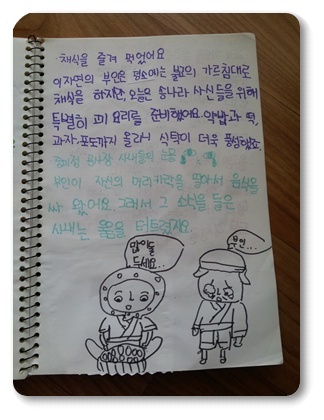 채식을 즐겨 먹었어요
이자연의 부인은 평소에는 불교의 가르침대로
채식을 하지만, 오늘은 송나라 사신들을 위해
특별히 고기 요리를 준비했어요. 약밥과 떡,
과자, 포도까지 올라서 식탁이 더욱 풍성해요.
사내들의 눈물
부인이 자신의 머리카락을 팔아서 음식을
싸 왔어요. 그래서 그 소식을 들은
사내는 울음을 터트렸지요.
많이들
두세요...
부인...